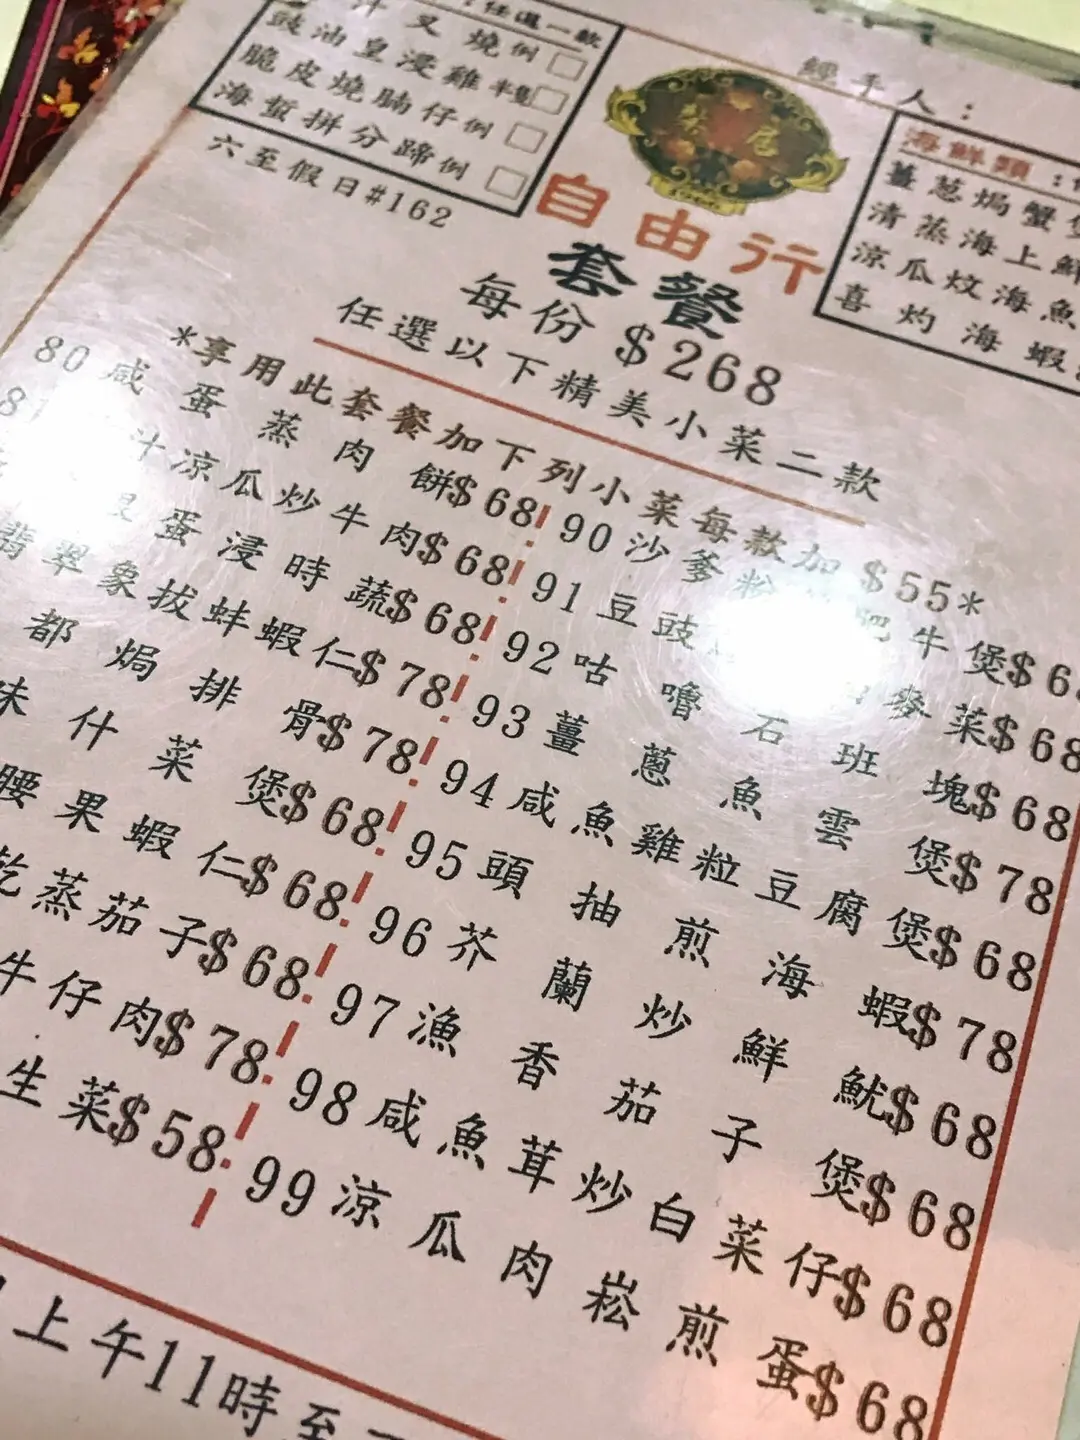 :任選一款
汁叉燒例
豉油皇浸雞半隻
脆皮燒腩仔例
海蜇拼分蹄例
六至假日#162
經手人:
海鮮類:
薑蔥焗蟹煲
清蒸海上鮮
涼瓜炆海魚
喜灼海蝦
自由行
套餐
每份$268
任選以下精美小菜二款
*享用此套餐加下列小菜每款加$55*
80咸蛋蒸肉餅$68
8 汁涼瓜炒牛肉$68
蛋浸時蔬$68
翡翠象拔蚌蝦仁$78
都焗排骨$78
味什菜煲$68
腰果蝦仁$68
乾蒸茄子$68
牛仔肉$78
生菜$58
90沙爹粉 肥牛煲$6
91豆豉 麥菜$68
92咕嚕石班塊$68
93薑蔥魚雲煲$78
94咸魚雞粒豆腐煲$68
95頭抽煎海蝦$78
96芥蘭炒鮮魷$68
97漁香茄子煲$68
98咸魚茸炒白菜仔$68
99涼瓜肉崧煎蛋$68
上午11時至